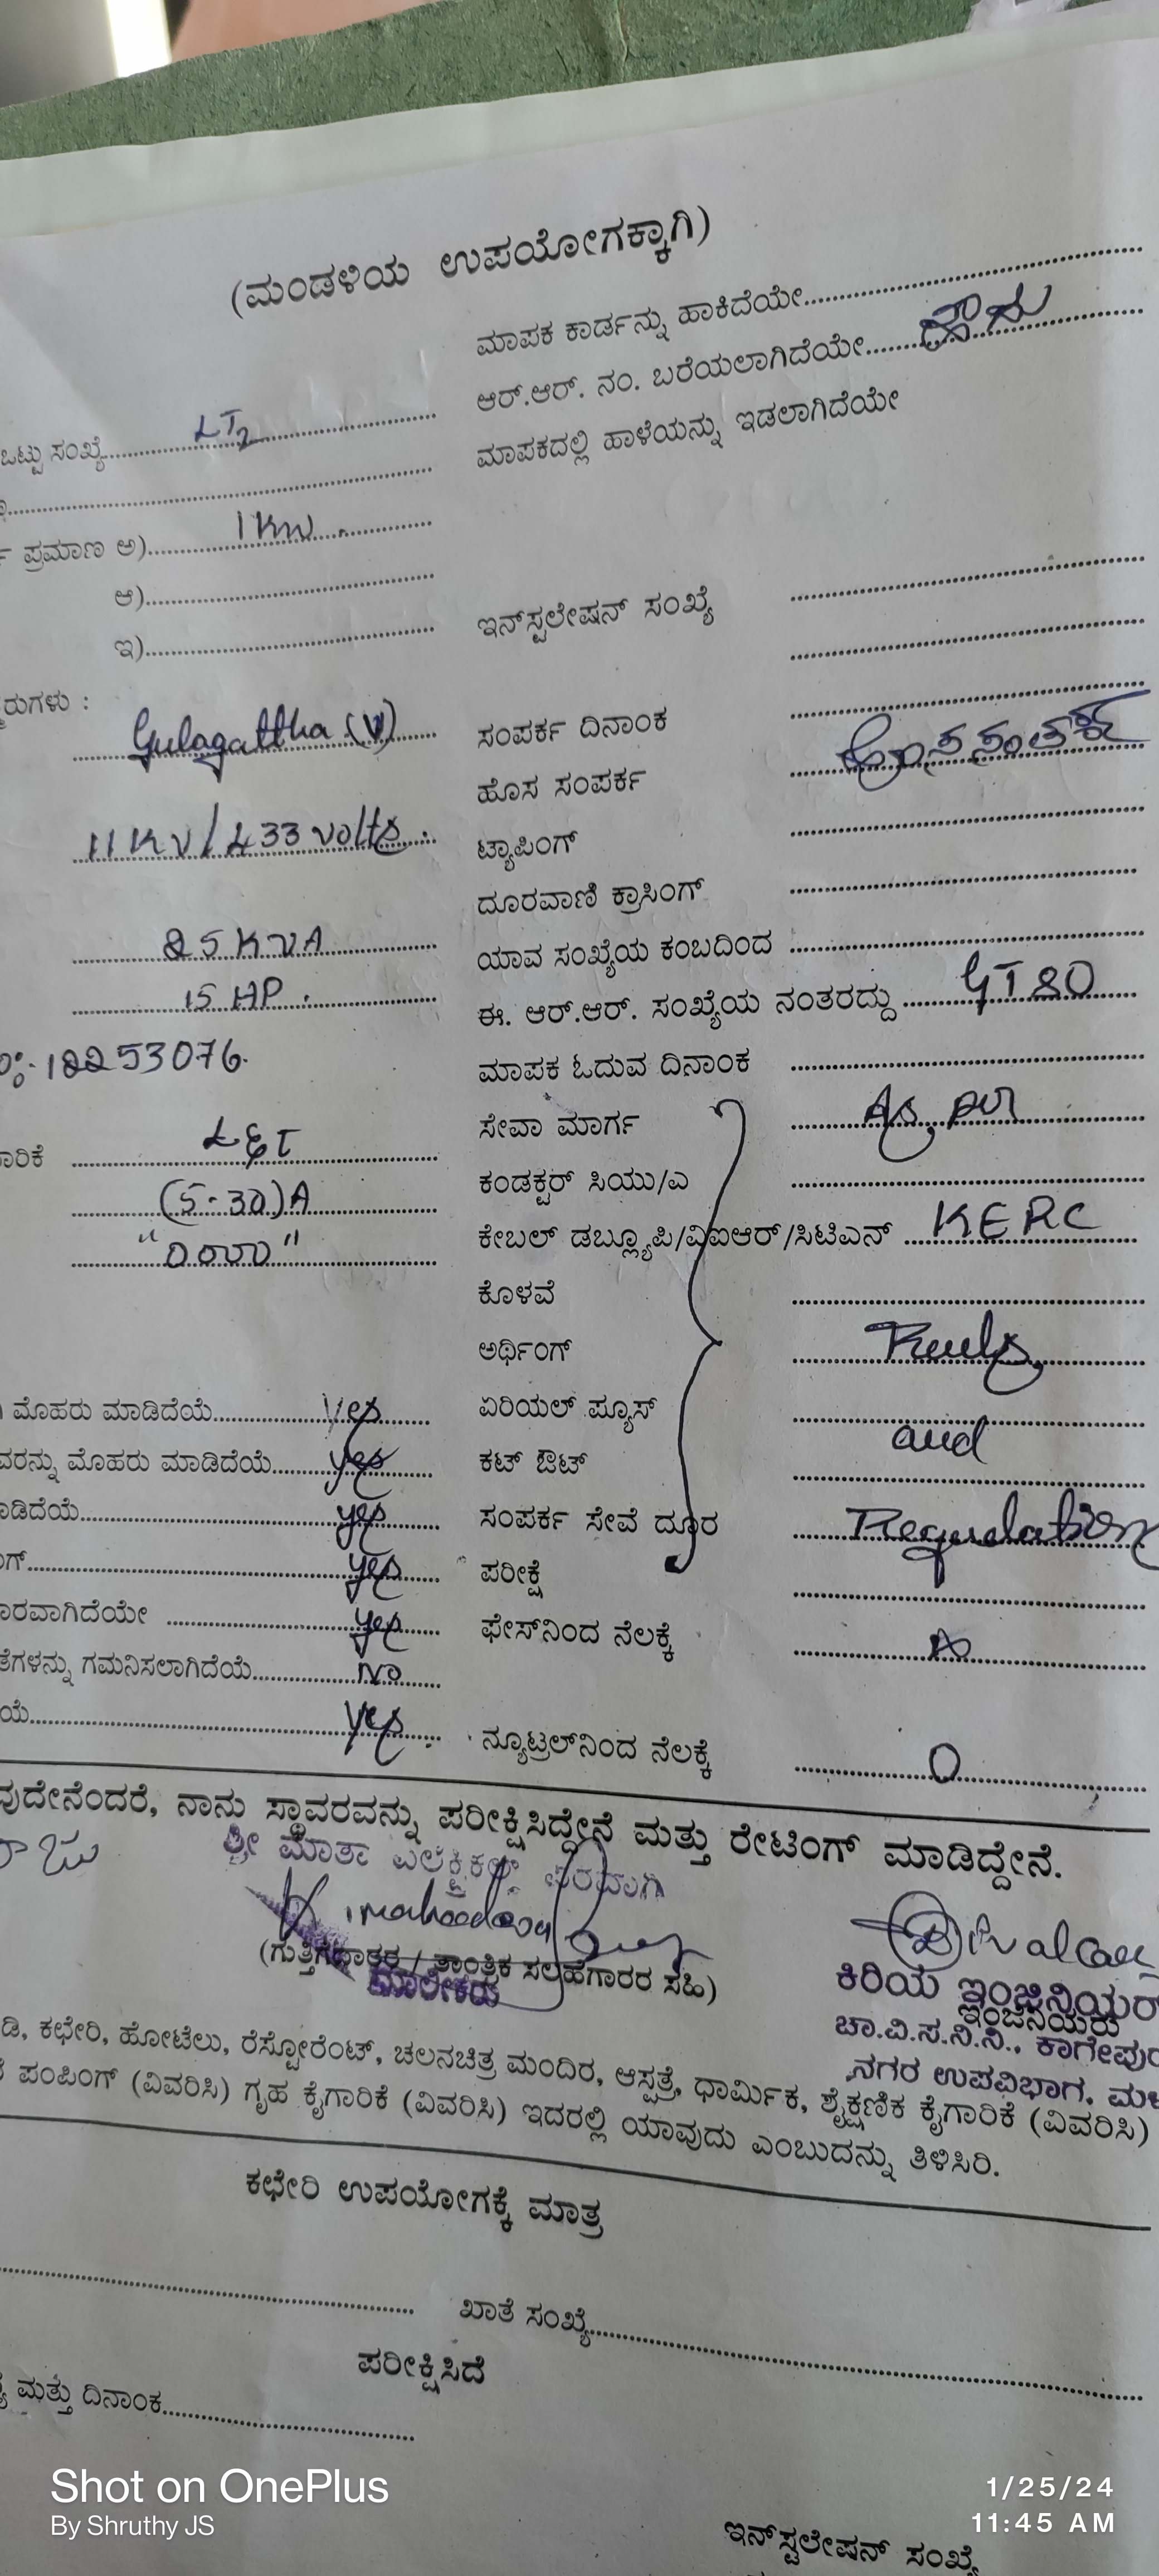 (ಮಂಡಳಿಯ ಉಪಯೋಗಕ್ಕಾಗಿ)
ಮಾಪಕ ಕಾರ್ಡನ್ನು ಹಾಕಿದೆಯೇ
ಆರ್.ಆರ್. ನಂ. ಬರೆಯಲಾಗಿದೆಯೇ ಹೌದು
ಒಟ್ಟು ಸಂಖ್ಯೆ LT2 ಮಾಪಕದಲ್ಲಿ ಹಾಳೆಯನ್ನು ಇಡಲಾಗಿದೆಯೇ
ಪ್ರಮಾಣ ಅ) 1 KW
ಆ)
ಇ) ಇನ್‌ಸ್ಟಲೇಷನ್ ಸಂಖ್ಯೆ
ರುಗಳು :
Gulagattha (V) ಸಂಪರ್ಕ ದಿನಾಂಕ
ಹೊಸ ಸಂಪರ್ಕ
11 KV/433 volts. ಟ್ಯಾಪಿಂಗ್
ದೂರವಾಣಿ ಕ್ರಾಸಿಂಗ್
25 KVA ಯಾವ ಸಂಖ್ಯೆಯ ಕಂಬದಿಂದ
15 HP. ಈ. ಆರ್.ಆರ್. ಸಂಖ್ಯೆಯ ನಂತರದ್ದು GT80
12253076. ಮಾಪಕ ಓದುವ ದಿನಾಂಕ
ಸೇವಾ ಮಾರ್ಗ As per
ಾರಿಕೆ L&T
(5-30)A ಕಂಡಕ್ಟರ್ ಸಿಯು/ಎ
ಕೇಬಲ್ ಡಬ್ಲ್ಯೂಪಿ/ವಿಐಆರ್/ಸಿಟಿಎನ್ KERC
ಕೊಳವೆ
ಅರ್ಥಿಂಗ್ Ruels
ಮೊಹರು ಮಾಡಿದೆಯೆ yes ಏರಿಯಲ್ ಪ್ಯೂಸ್
and
ವರನ್ನು ಮೊಹರು ಮಾಡಿದೆಯೆ yes ಕಟ್ ಔಟ್
ಾಡಿದೆಯೆ yes ಸಂಪರ್ಕ ಸೇವೆ ದೂರ Regulation
ಗ್ yes ಪರೀಕ್ಷೆ
ಾರವಾಗಿದೆಯೇ yes ಫೇಸ್‌ನಿಂದ ನೆಲಕ್ಕೆ
ತೆಗಳನ್ನು ಗಮನಿಸಲಾಗಿದೆಯೆ no
ಯೆ yes. ನ್ಯೂಟ್ರಲ್‌ನಿಂದ ನೆಲಕ್ಕೆ 0
ವುದೇನೆಂದರೆ, ನಾನು ಸ್ಥಾವರವನ್ನು ಪರೀಕ್ಷಿಸಿದ್ದೇನೆ ಮತ್ತು ರೇಟಿಂಗ್ ಮಾಡಿದ್ದೇನೆ.
ಶ್ರೀ ಮಾತಾ ಎಲೆಕ್ಟ್ರಿಕಲ್ಸ್ ಪರವಾಗಿ
(ಗುತ್ತಿಗೆದಾರರ / ತಾಂತ್ರಿಕ ಸಲಹೆಗಾರರ ಸಹಿ)
ಮಾಲೀಕರು
ಕಿರಿಯ ಇಂಜಿನಿಯರ್
ಇಂಜಿನಿಯರು
ಚಾ.ವಿ.ಸ.ನಿ.ನಿ., ಕಾಗೇಪು
ನಗರ ಉಪವಿಭಾಗ, ಮಳ
ಡಿ, ಕಛೇರಿ, ಹೋಟೆಲು, ರೆಸ್ಟೋರೆಂಟ್, ಚಲನಚಿತ್ರ ಮಂದಿರ, ಆಸ್ಪತ್ರೆ, ಧಾರ್ಮಿಕ, ಶೈಕ್ಷಣಿಕ ಕೈಗಾರಿಕೆ (ವಿವರಿಸಿ)
ಪಂಪಿಂಗ್ (ವಿವರಿಸಿ) ಗೃಹ ಕೈಗಾರಿಕೆ (ವಿವರಿಸಿ) ಇದರಲ್ಲಿ ಯಾವುದು ಎಂಬುದನ್ನು ತಿಳಿಸಿರಿ.
ಕಛೇರಿ ಉಪಯೋಗಕ್ಕೆ ಮಾತ್ರ
ಖಾತೆ ಸಂಖ್ಯೆ
ಪರೀಕ್ಷಿಸಿದೆ
ಮತ್ತು ದಿನಾಂಕ
Shot on OnePlus
By Shruthy JS
1/25/24
11:45 AM
ಇನ್‌ಸ್ಟಲೇಷನ್ ಸಂಖ್ಯೆ